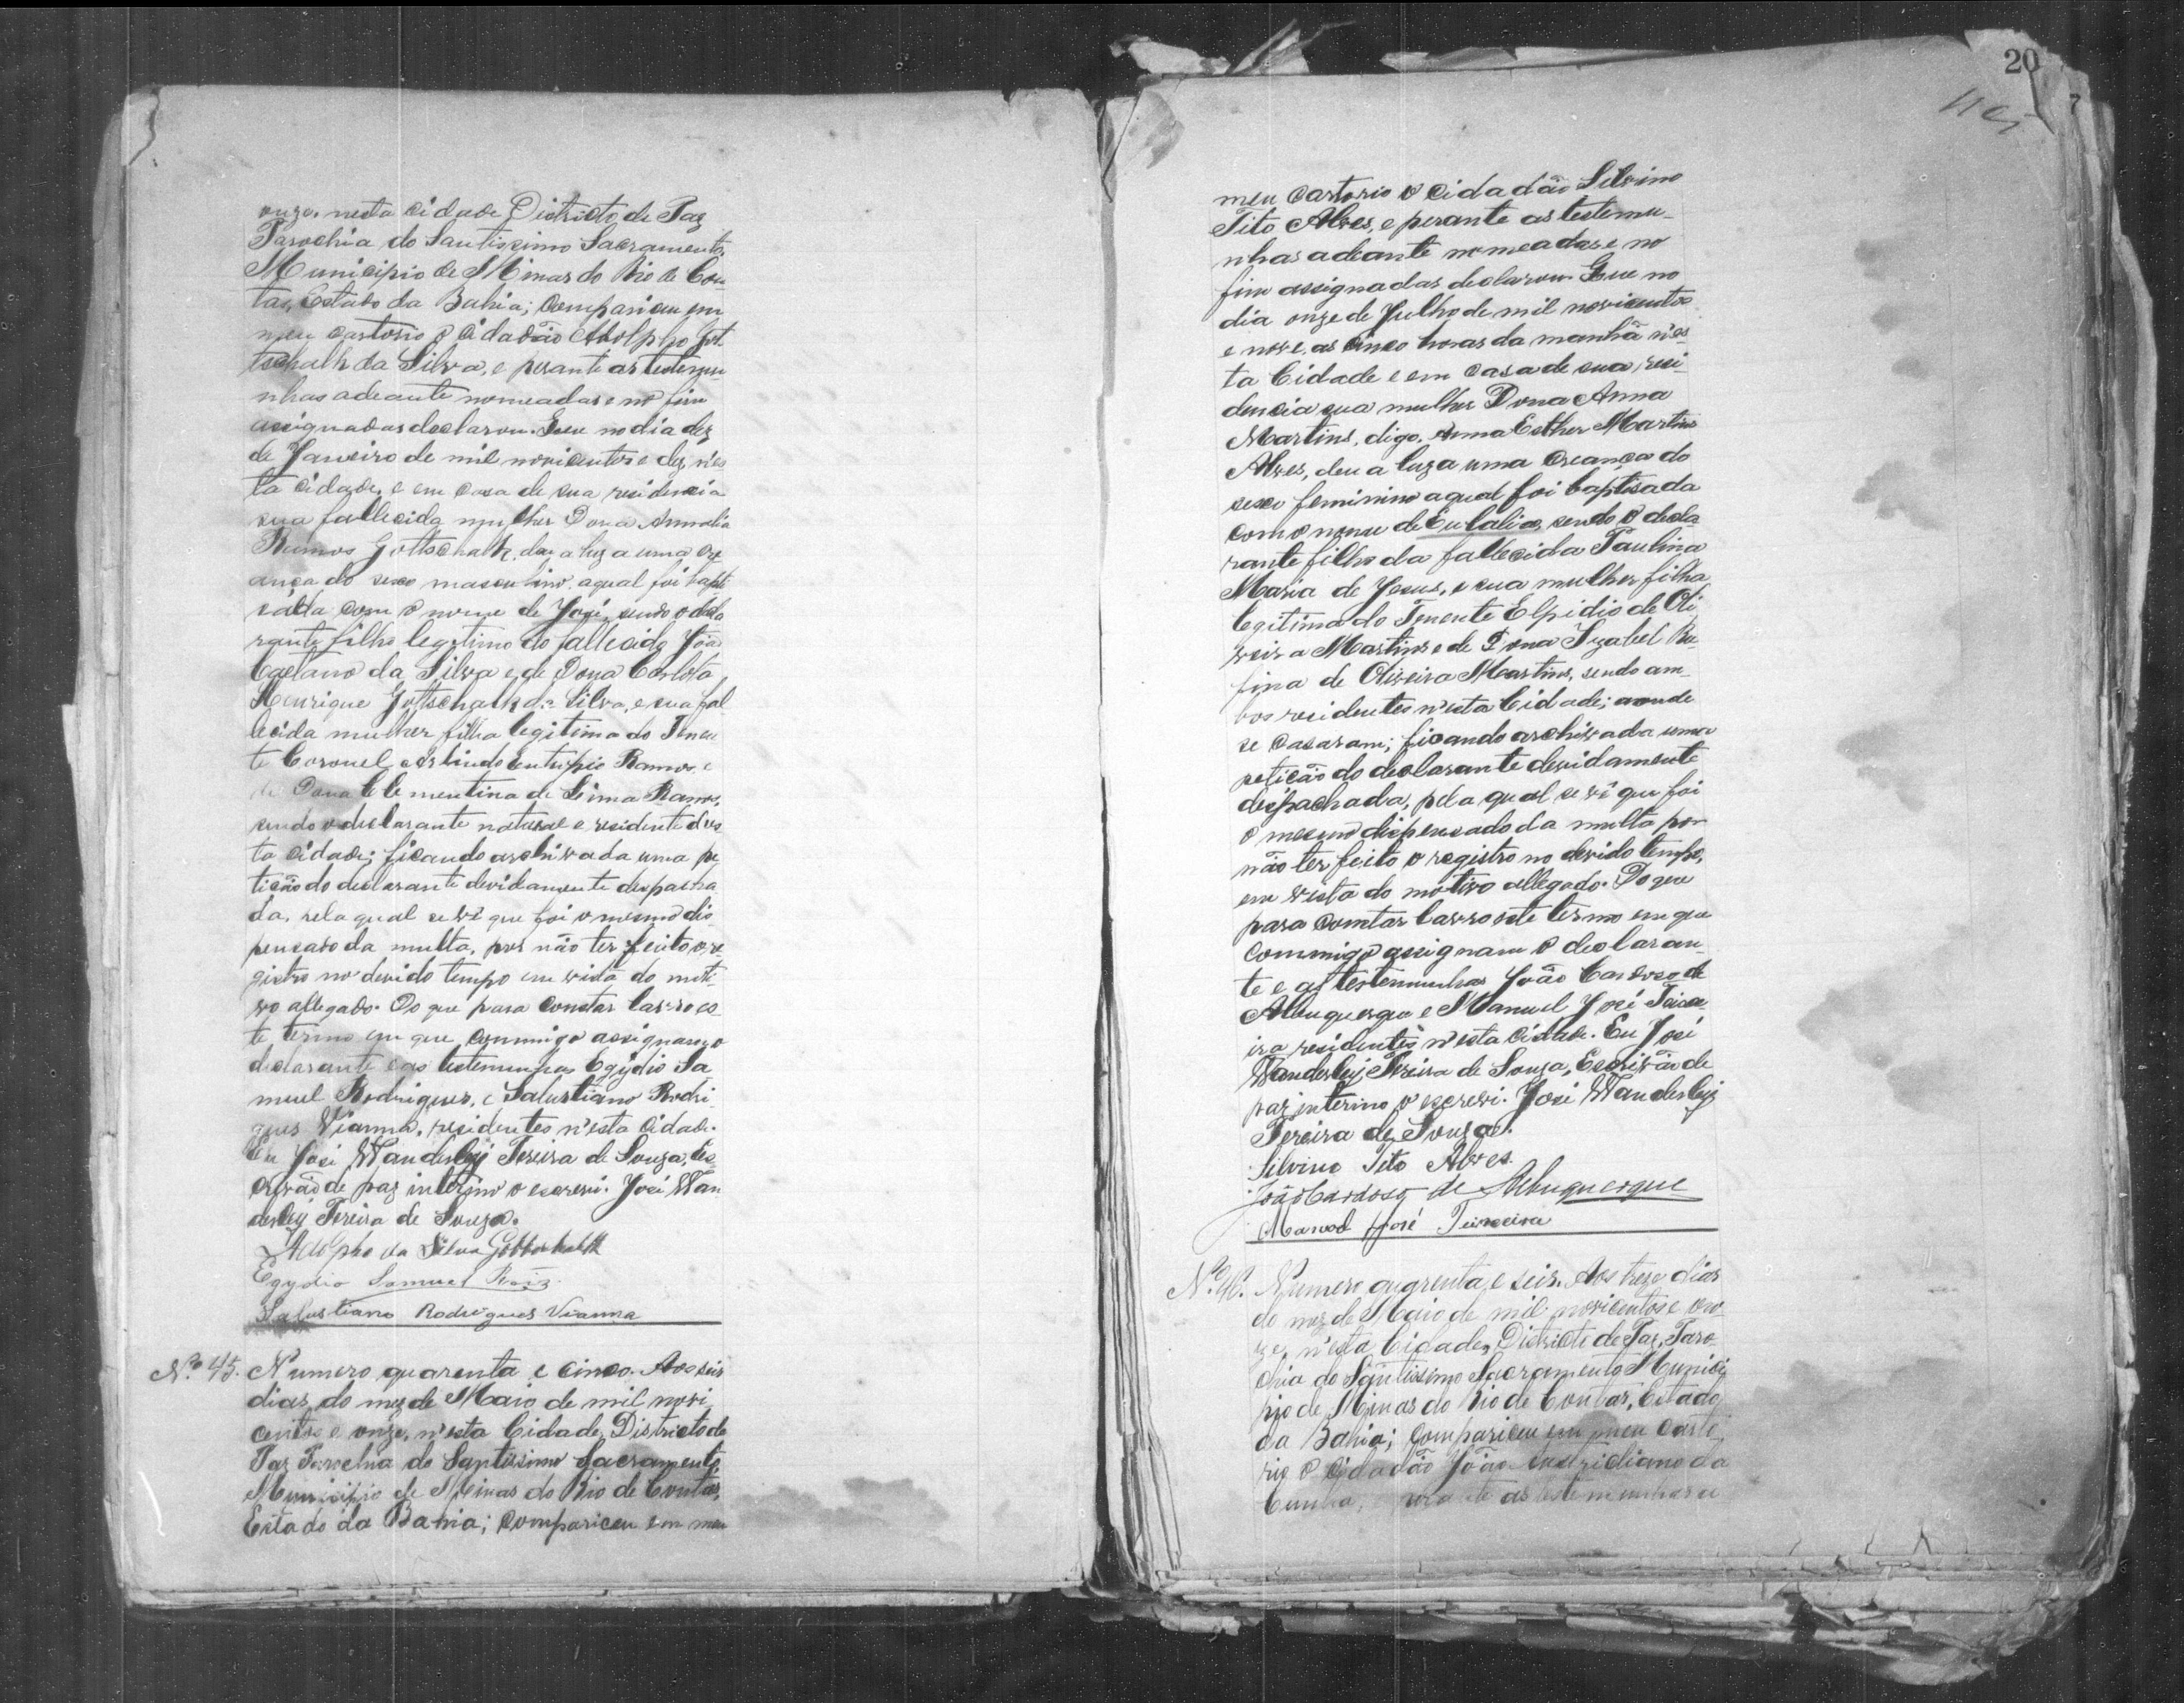 onze, nesta cidade Districto de Paz
Parochia do Santissimo Sacramento,
Municipio de Minas do Rio de Con
tas, Estado da Bahia; compariceu em
meu cartorio o cidadão Adolpho Got
tschalk da Silva, e perante as testemu
nhas adeante nomeadas e no fim
assignadas declarou. Que no dia dez
de Janeiro de mil novicentos e dez n'es
ta cidade, e em casa de sua residencia
sua fallecida mulher Dona Annalia
Ramos Gottschalk, deu a luz a uma cre
ança do sexo masculino aqual foi bapti
sada com o nome de José, sendo o decla
rante filho legitimo do fallecido João
Caetano da Silva e de Dona Carlota
Henrique Gottschalk da Silva, e sua fal
lecida mulher filha legitima do Tenen
te Coronel Ramos e
de Dona Clementina de Lima Ramos,
sendo o declarante natural e residente des
ta cidade; ficando archivada uma pe
tição do declarante devidamente despacha
da, pela qual se vê que foi o mesmo dis
pensado da multa, por não ter feito o re
gistro no devido tempo em vista do moti
vo allegado. Do que para constar lavro es
te termo em que commigo assignam o
declarante e as testemunhas Egydio Sa
muel Rodrigues, e Salustiano Rodri
gues Vianna, residentes n'esta cidade.
Eu José Wanderley Pereira de Souza, Es
crivão de paz interino o escrevi. José Wan
derley Pereira de Souza.
Adolpho da Silva Gottschalk
Egydio Samuel Roiz
Salustiano Rodrigues Vianna
Nº 45. Numero quarenta e cinco. Aos seis
dias do mez de Maio de mil novi
centos e onze, n'esta Cidade, Districto de
Paz Parochia do Santissimo Sacramento,
Municipio de Minas do Rio de Contas,
Estado da Bahia; compariceu em meu
20
115
7
meu cartorio o cidadão Silvino
Tito Alves, e perante as testemu-
nhas adeante nomeadas e no
fim assignadas declarou. Que no
dia onze de Julho de mil novicentos
e nove, as cinco horas da manhã n'es
ta Cidade e em casa de sua resi
dencia sua mulher Dona Anna
Martins, digo, Anna Esther Martins
Alves, deu a luz a uma creança do
sexo feminino aqual foi baptisada
com o nome de Eulalia, sendo o decla
rante filho da fallecida Paulina
Maria de Jesus, e sua mulher filha
legitima do Tenente Elpidio de Oli
veira Martins e de Dona Izabel Ru
fina de Oliveira Martins, sendo am-
bos residentes n'esta Cidade; aonde
se casaram; ficando archivada uma
petição do declarante devidamente
despachada, pela qual se vê que foi
o mesmo dispensado da multa por
não ter feito o registro no devido tempo,
em vista do motivo allegado. Do que
para constar lavro este termo em que
commigo assignam o declaran-
te e as testemunhas João Cardoso de
Albuquerque e Manuel José Teixe
ira residentes n'esta cidade. Eu José
Wanderley Pereira de Souza, Escrivão de
paz interino o escrevi. José Wanderley
Pereira de Souza.
Silvino Tito Alves.
João Cardoso de Albuquerque
Manoel José Teixeira
Nº 46. Numero quarenta e seis. Aos treze dias
do mez de Maio de mil novicentos e on-
ze, n'esta Cidade, Districto de Paz, Paro-
chia do Santissimo Sacramento Munici
pio de Minas do Rio de Contas, Estado
da Bahia; compariceu em meu carto
rio o cidadão João da
Cunha, perante as testemunhas a